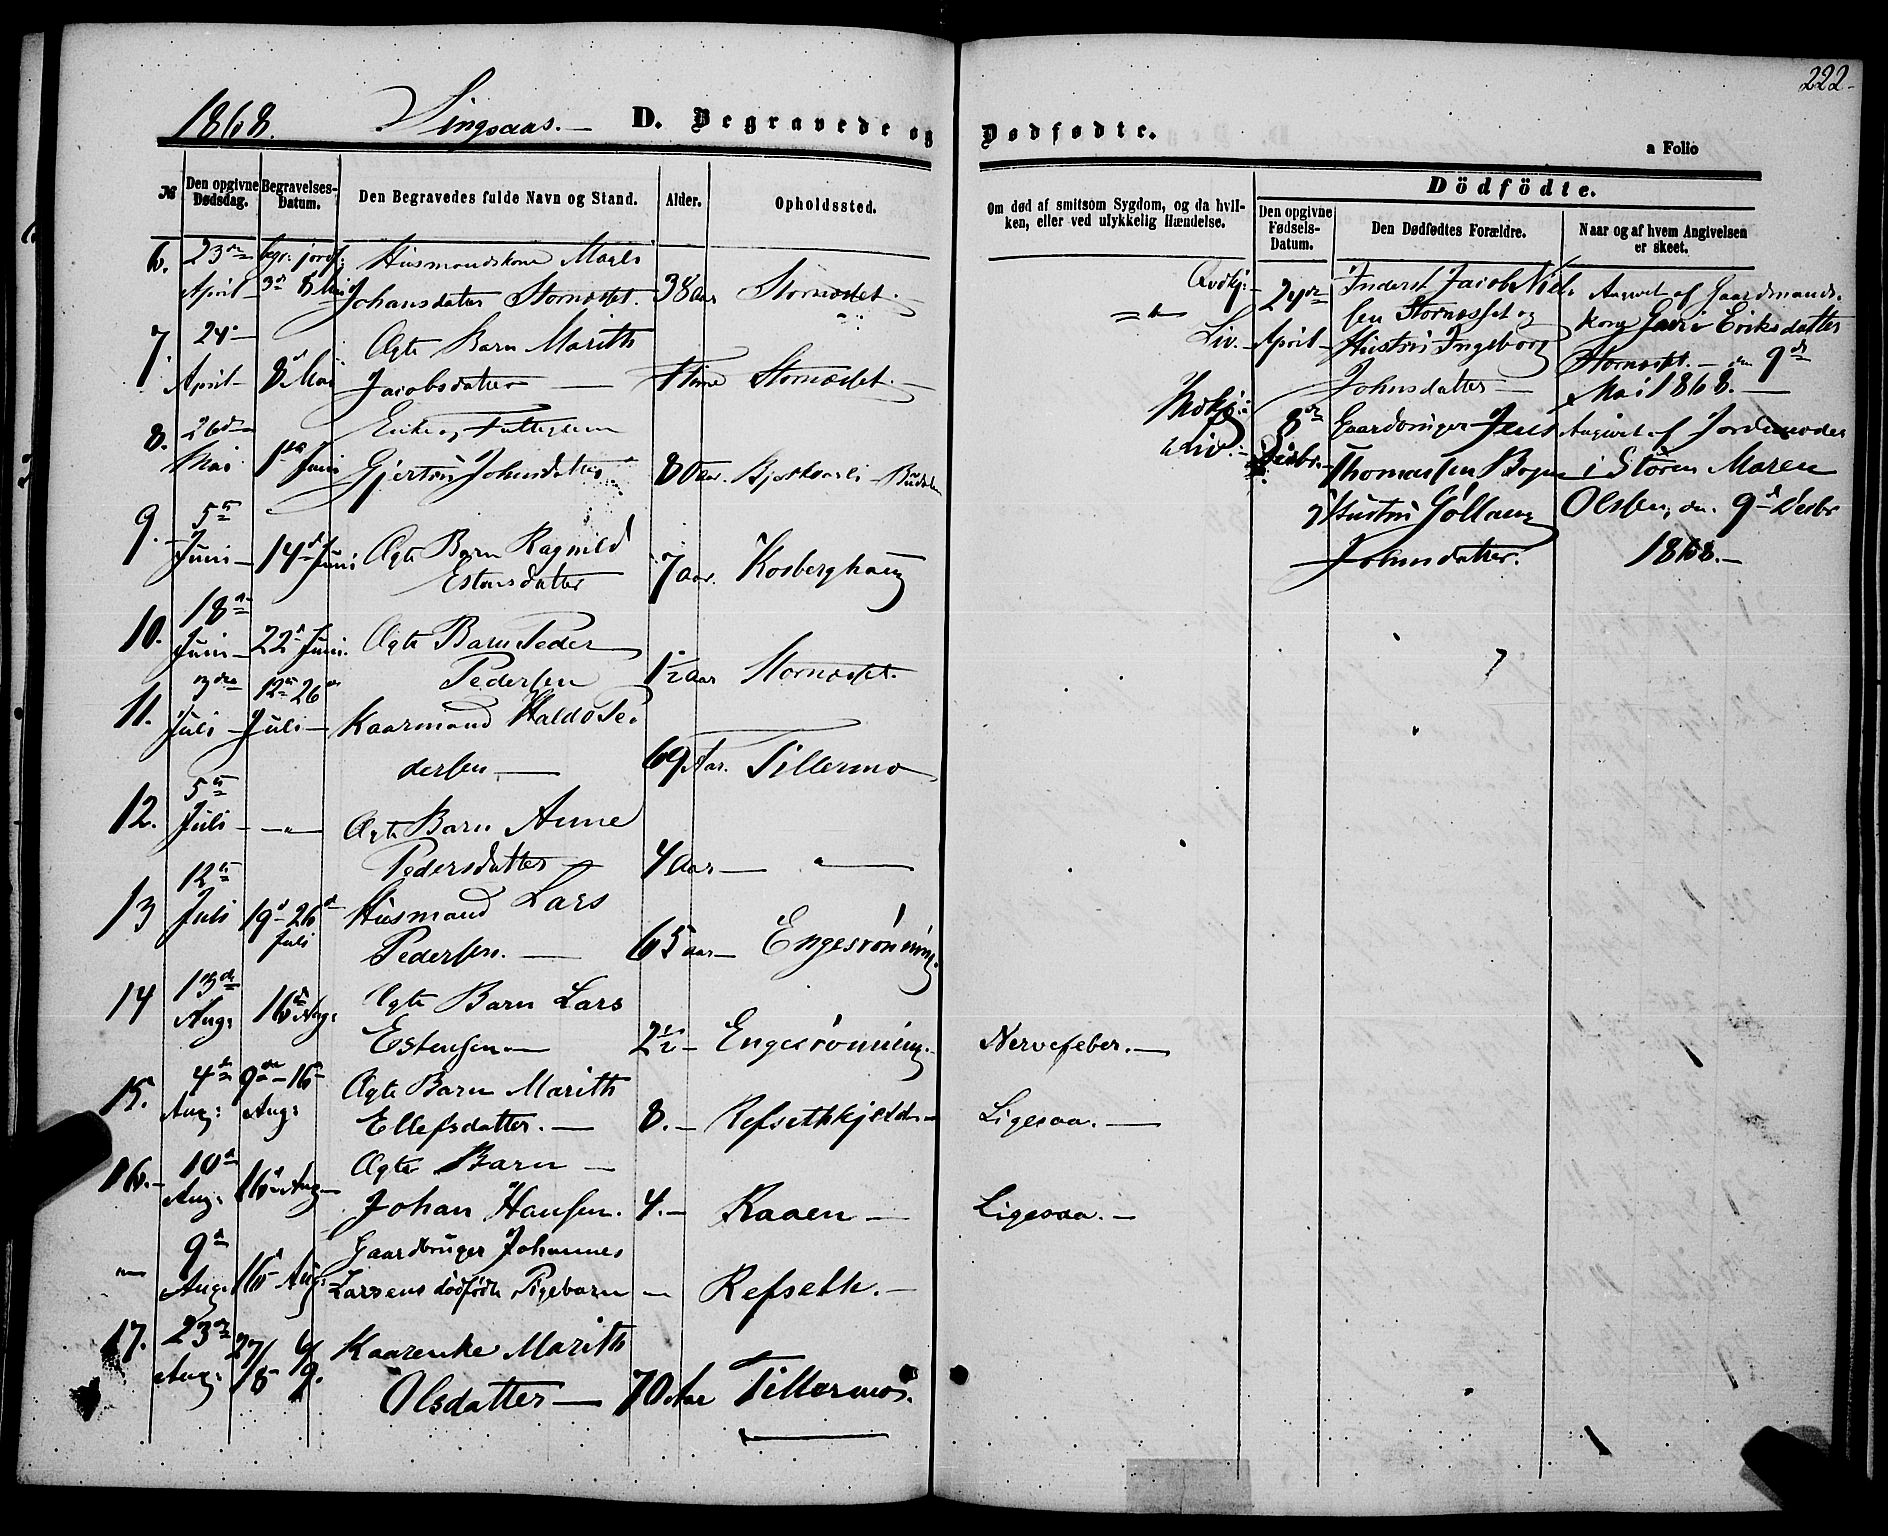 222
1868. Singsaas. — D. Begravede og Dødfødte.
a Folio
№ Den opgivne Dødsdag. Begravelses-Datum. Den Begravedes fulde Navn og Stand. Alder. Opholdssted.
Om død af smitsom Sygdom, og da hvilken, eller ved ulykkelig Hændelse.
Dödfödte.
Den opgivne Fødsels-Datum. Den Dødfødtes Forældre. Naar og af hvem Angivelsen er skeet.
6. 23de begr: jordf:
Husmandskone
April 3d 8 Mai Johansdatter Stornæsset. 38 Aar Stornæsset.
7. 24 Ægte Barn Marith
April 8 Mai Jacobsdatter — 1 Time Stornæsset. —
8. 26d Enke og
Mai 1ste Juni Gjertru Johnsdatter 80 Aar.
9. 5te
Juni 14d Juni Ægte Barn Ragnild
Estensdatter 7 Aar. Kosberghaug
10. 18d
Juni 22d Juni. Ægte Barn Peder
Pedersen 1½ Aar Stornæsset.
11. 3die 12te 26de
Juli Juli Kaarmand Haldo Pe-
dersen — 69 Aar. Tillermo
12. 5te
Juli — " — Ægte Barn Anne
Pedersdatter 4 Aar — "
13 12te
Juli 19d 26d Juli Husmand Lars
Pedersen. — 65 Aar — Engesrönning.
14 13de
Aug: 16d Aug: Ægte Barn Lars
Estensen — 2½ — Engesrönning. — Nervefeber. —
15. 4de 9de — 16
Aug: Aug: Ægte Barn Marith
Ellefsdatter. — 8. — Ligesaa. —
16. — 10d
Aug: 16d Aug. Ægte Barn —
Johan Hansen. 4. — Kaaen — Ligesaa. —
" 9d Gaardbruger Johannes
Aug 16 Aug: Larsens dödfödte Pigebarn — Refseth. —
17. 23de
Aug: 27/8 6/9. Kaarenke Marith
Olsdatter — 70 Aar Tillermo.
24de
April
Inderst Jacob Niel-
sen Stornæsset og
Hustru Ingeborg
Johnsdatter —
Angivet af Gaardmands-
kone Guri Eriksdatter
Stornæsset. — 9de
Mai 1868. —
8de
Decbr.
Gaardbruger Jens
Thomassen
Hustru
Johnsdatter.
Angivet af Jordmoder
i Stören Maren
Olsen, 9d Decbr
1868. —